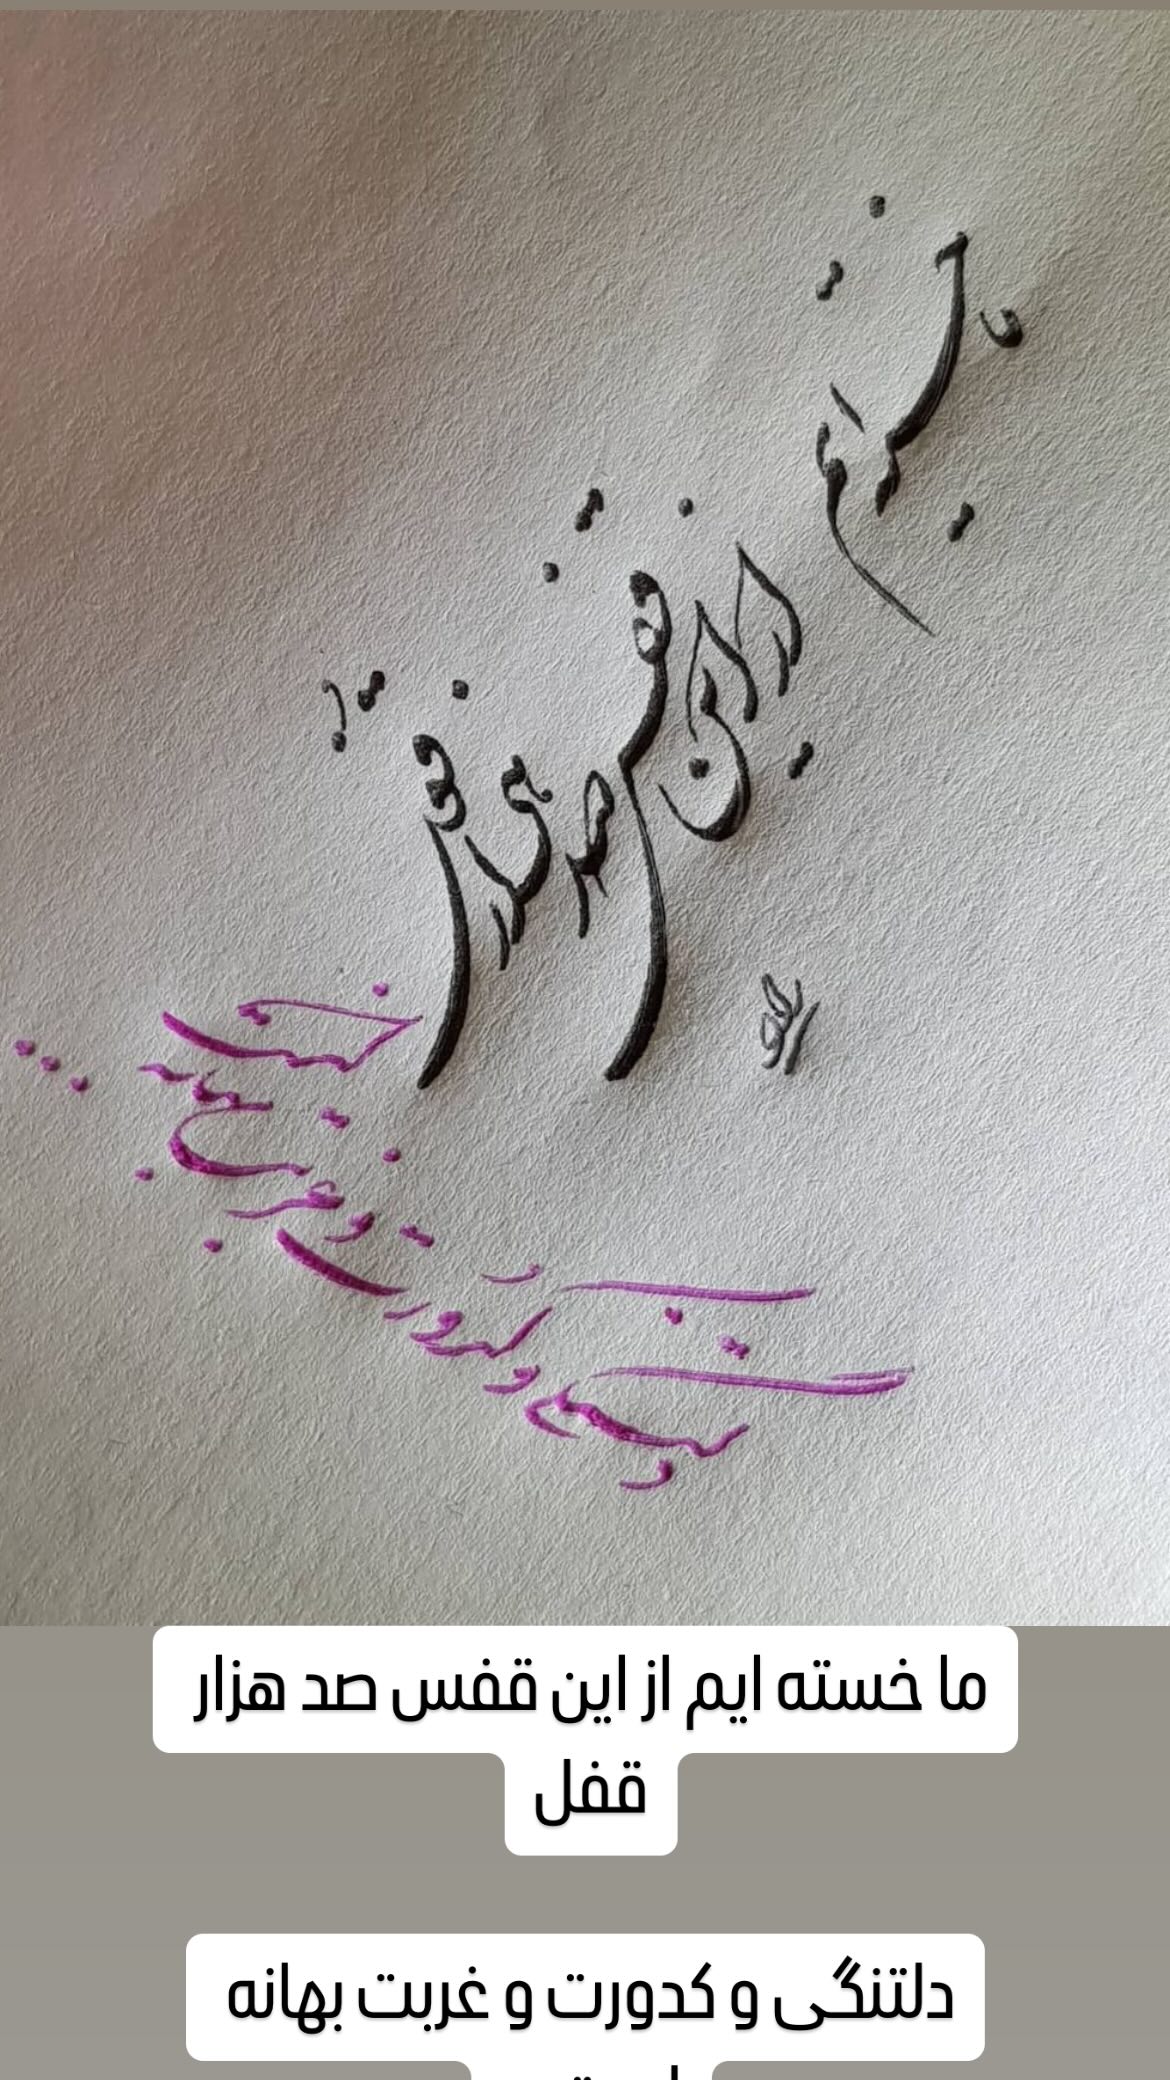 ما خسته ایم از این قفس صد هزار قفل
دلتنگی و کدورت و غربت بهانه است
ما خسته ایم از این قفس صد هزار
قفل
دلتنگی و کدورت و غربت بهانه